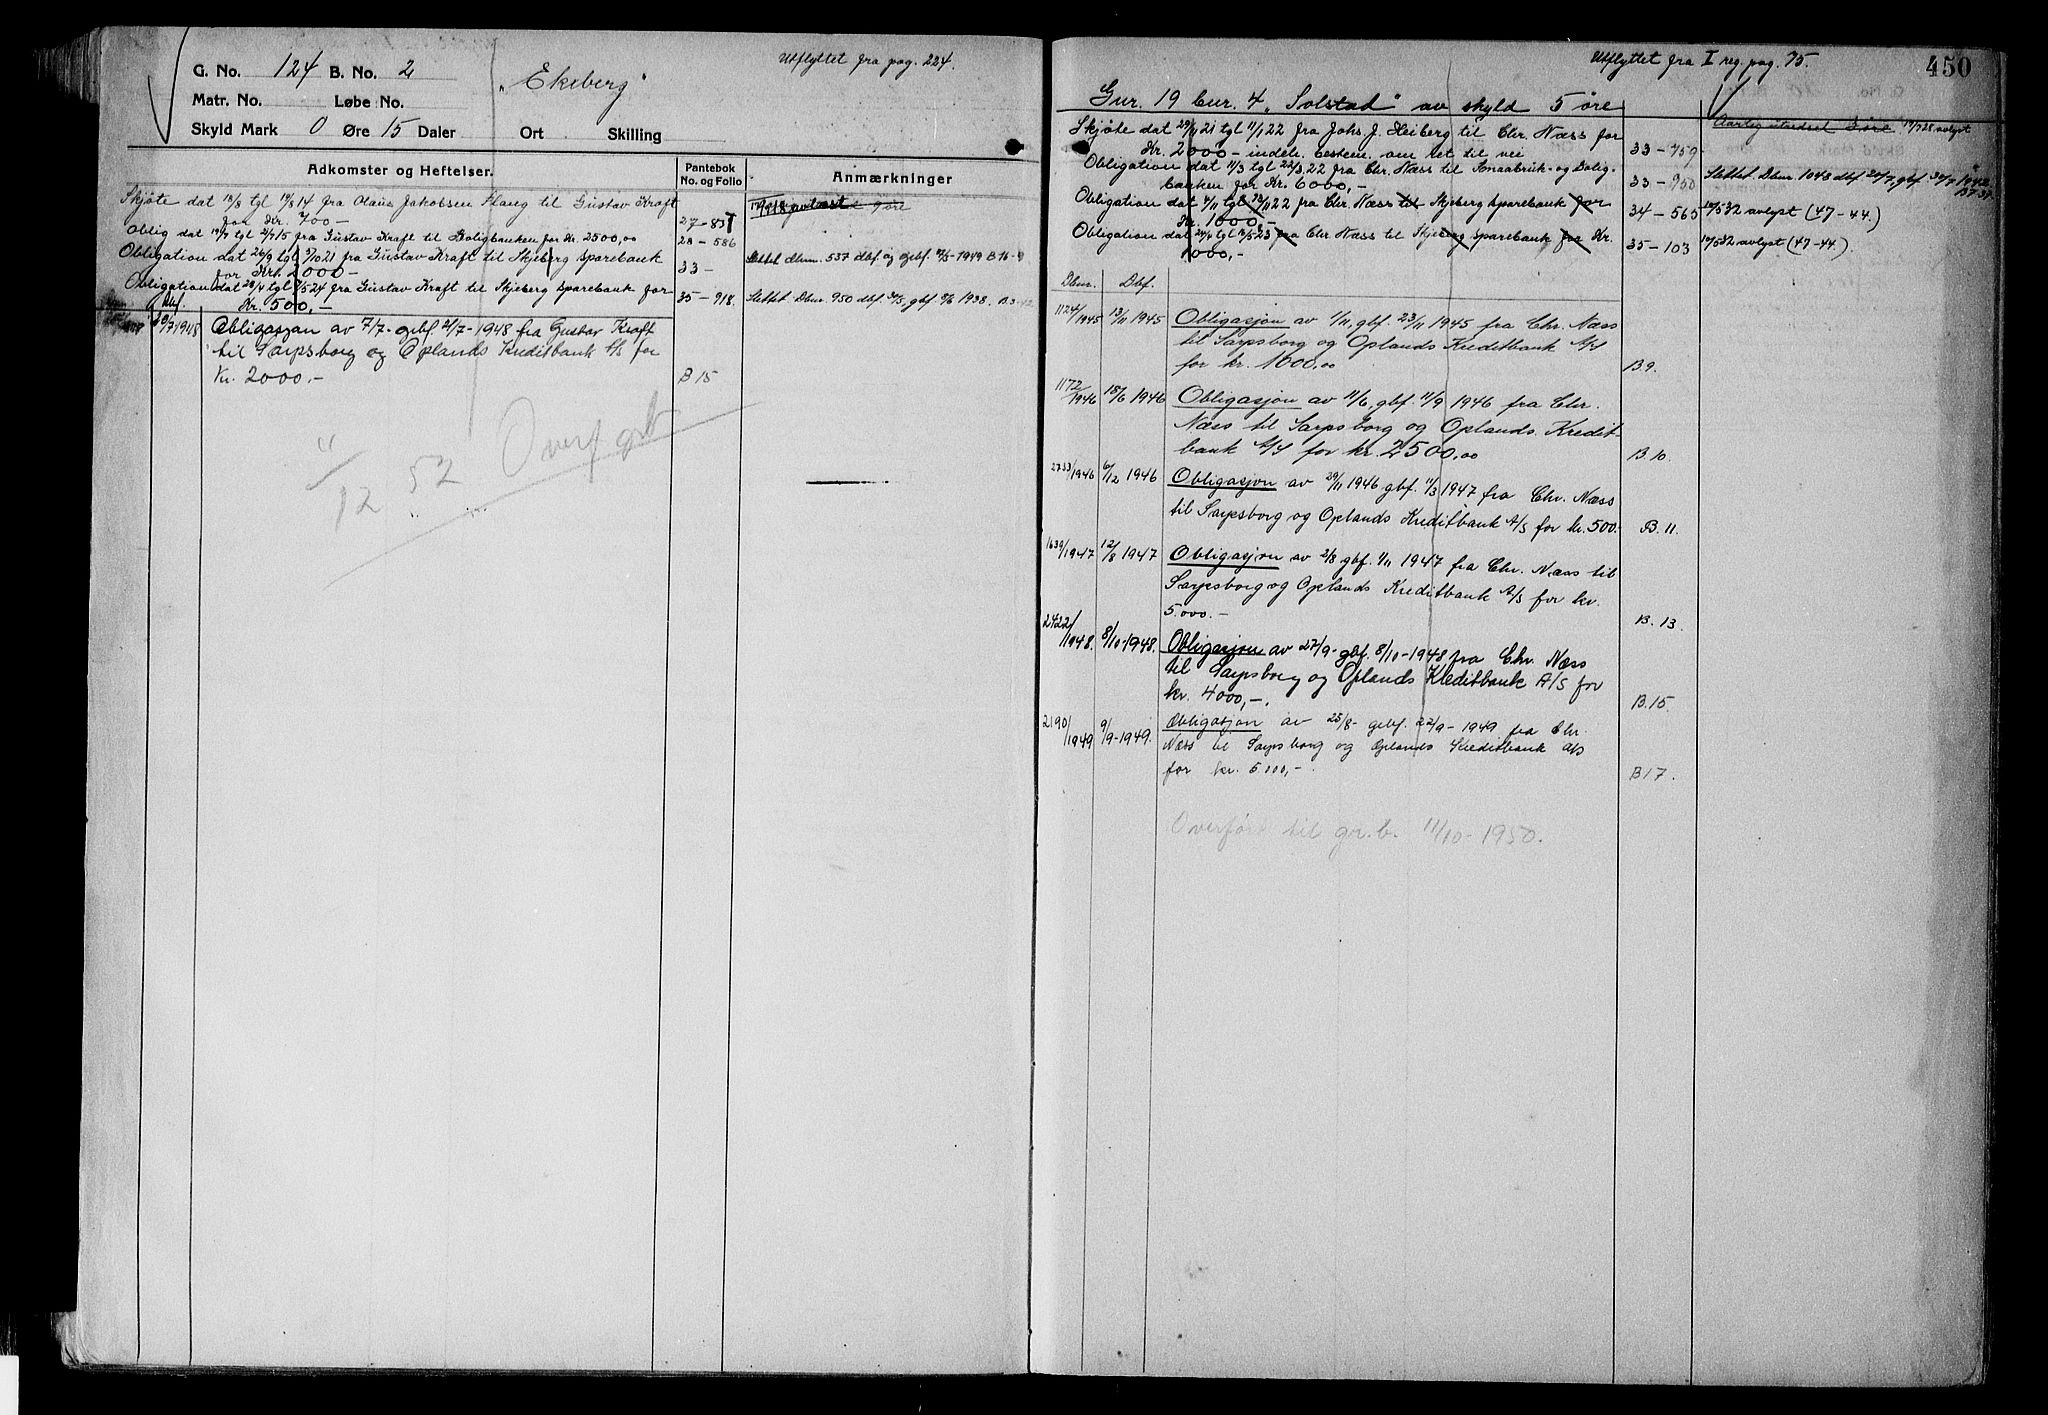 G. No. 124 B. No. 2
Utflyttet fra pag. 224.
"Ekeberg"
Matr. No. Løbe No.
Skyld Mark 0 Øre 15 Daler Ort Skilling
Adkomster og Heftelser.
Pantebok No. og Folio
Anmærkninger
Skjøte dat 13/8 tgl 14/8 14 fra Olaus Jakobsen Haug til Gustav Kraft
for Kr. 700 -
27-837
Oblig dat tgl 2/7 15 fra Gustav Kraft til Boligbanken for Kr. 2500,00
28-586
Obligation dat 26/9 tgl 3/10 21 fra Gustav Kraft til Skjeberg Sparebank
for Kr. 2000 -
33 -
Slettet dbnr. 537 dbf og gbf. 1949 B 16
Obligation dat 28/4 tgl 5 24 fra Gustav Kraft til Skjeberg Sparebank for
Kr. 500,-
35-918.
Slettet Dbnr. 950 dbf. 31/5, gbf 1938. B 3
Dbf.
1948
Obligasjon av 7/7- gbf 21/7-1948 fra Gustav Kraft
til Sarpsborg og Oplands Kreditbank A/S for
Kr. 2000.-
B 15
11/12 52 Overf grb
Utflyttet fra I reg. pag. 75.
450
Gnr. 19 bnr. 4 "Solstad" av skyld 5 øre
Skjøte dat 29/11 21 tgl 11/1 22 fra Johs. J. Heiberg til Chr. Næss for
Kr. 2000 - indeh. bestem. om ret til vei
33-759
Obligation dat 11/3 tgl 22/3 22 fra Chr. Næss til Smaabruk- og Bolig-
banken for Kr. 6000,-
33-950
Slettet Dbnr. 1048 dbf 29/7, gbf. 30/7 1942
Obligation dat 7/11 tgl 13/11 22 fra Chr. Næss til Skjeberg Sparebank for
Kr. 1000,-
34-565
19/5 32 avlyst (47-44.)
Obligation dat tgl 5 23 fra Chr Næss til Skjeberg Sparebank for Kr.
1000,-
35-103
19/5 32 avlyst (47-44).
Dbnr. Dbf.
1124/1945 13/11 1945
Obligasjon av 1/11, gbf. 23/11 1945 fra Chr. Næss
til Sarpsborg og Oplands Kreditbank A/S
for kr. 1000,00
B 9.
1172/1946 18/6 1946
Obligasjon av 11/6, gbf. 11/9 1946 fra Chr.
Næss til Sarpsborg og Oplands Kredit-
bank A/S for kr. 2500,00
B. 10.
2733/1946 6/12 1946
Obligasjon av 29/11 1946 gbf. 11/3 1947 fra Chr. Næss
til Sarpsborg og Oplands Kreditbank A/S for kr. 500.
B. 11.
1639/1947 12/8 1947
Obligasjon av 2/8 gbf. 1/11 1947 fra Chr. Næss til
Sarpsborg og Oplands Kreditbank A/S for kr.
5.000.-
B. 13.
2422/1948. 8/10-1948.
Obligasjon av 27/9- gbf. 8/10-1948 fra Chr. Næss
til Sarpsborg og Oplands Kreditbank A/S for
kr. 4000,-.
B. 15.
2190/1949 9/9-1949.
Obligasjon av 25/8- gbf. 22/9-1949 fra Chr.
Næss til Sarpsborg og Oplands Kreditbank A/S
for kr. 5.000,-.
B 17.
Overført til gr.b. 11/10-1950.